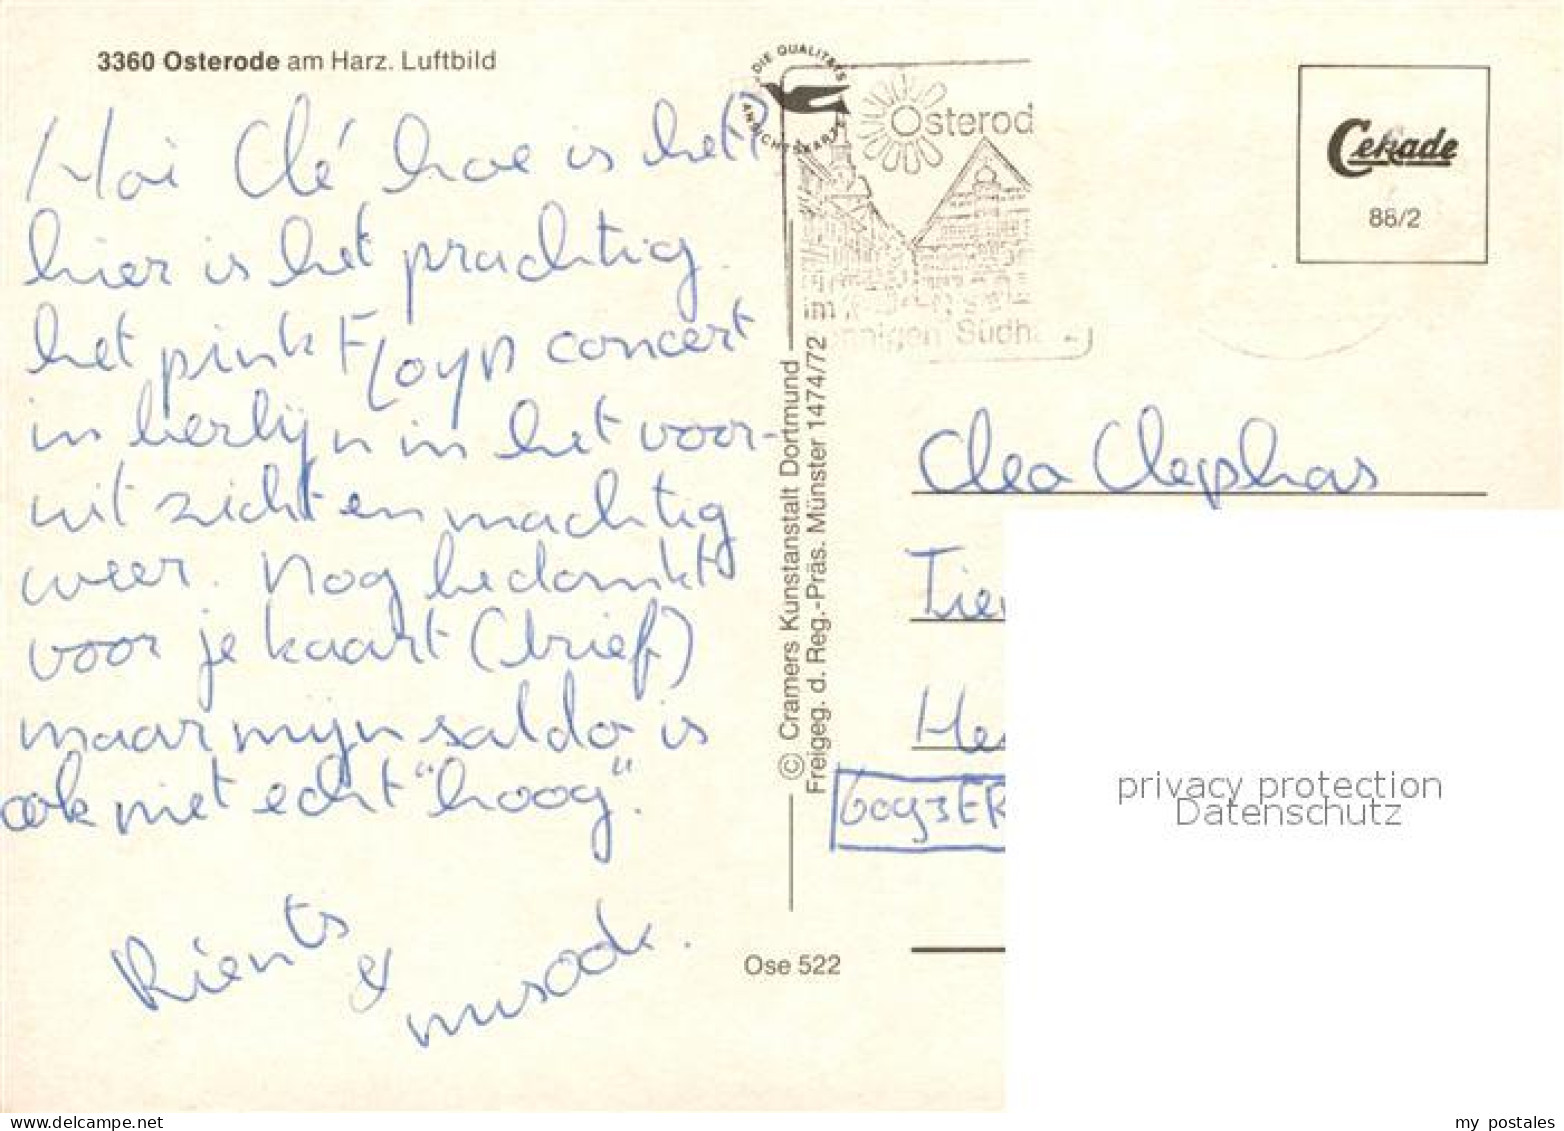 3360 Osterode am Harz. Luftbild
Hoi Clé hoe is het?
hier is het prachtig
het pink Floyd concert
in berlijn in het voor-
uitzicht en machtig
weer. Nog bedankt
voor je kaart (brief)
maar mijn saldo is
ook niet echt "hoog".
Rients
&
DIE QUALITÄTS
ANSICHTSKARTE
Osterod
im
nnigen Südh
© Cramers Kunstanstalt Dortmund
Freigeg. d. Reg.-Präs. Münster 1474/72
Ose 522
Cekade
88/2
Cleo Clephas
Tie
He
6093ER
privacy protection
Datenschutz
my postales